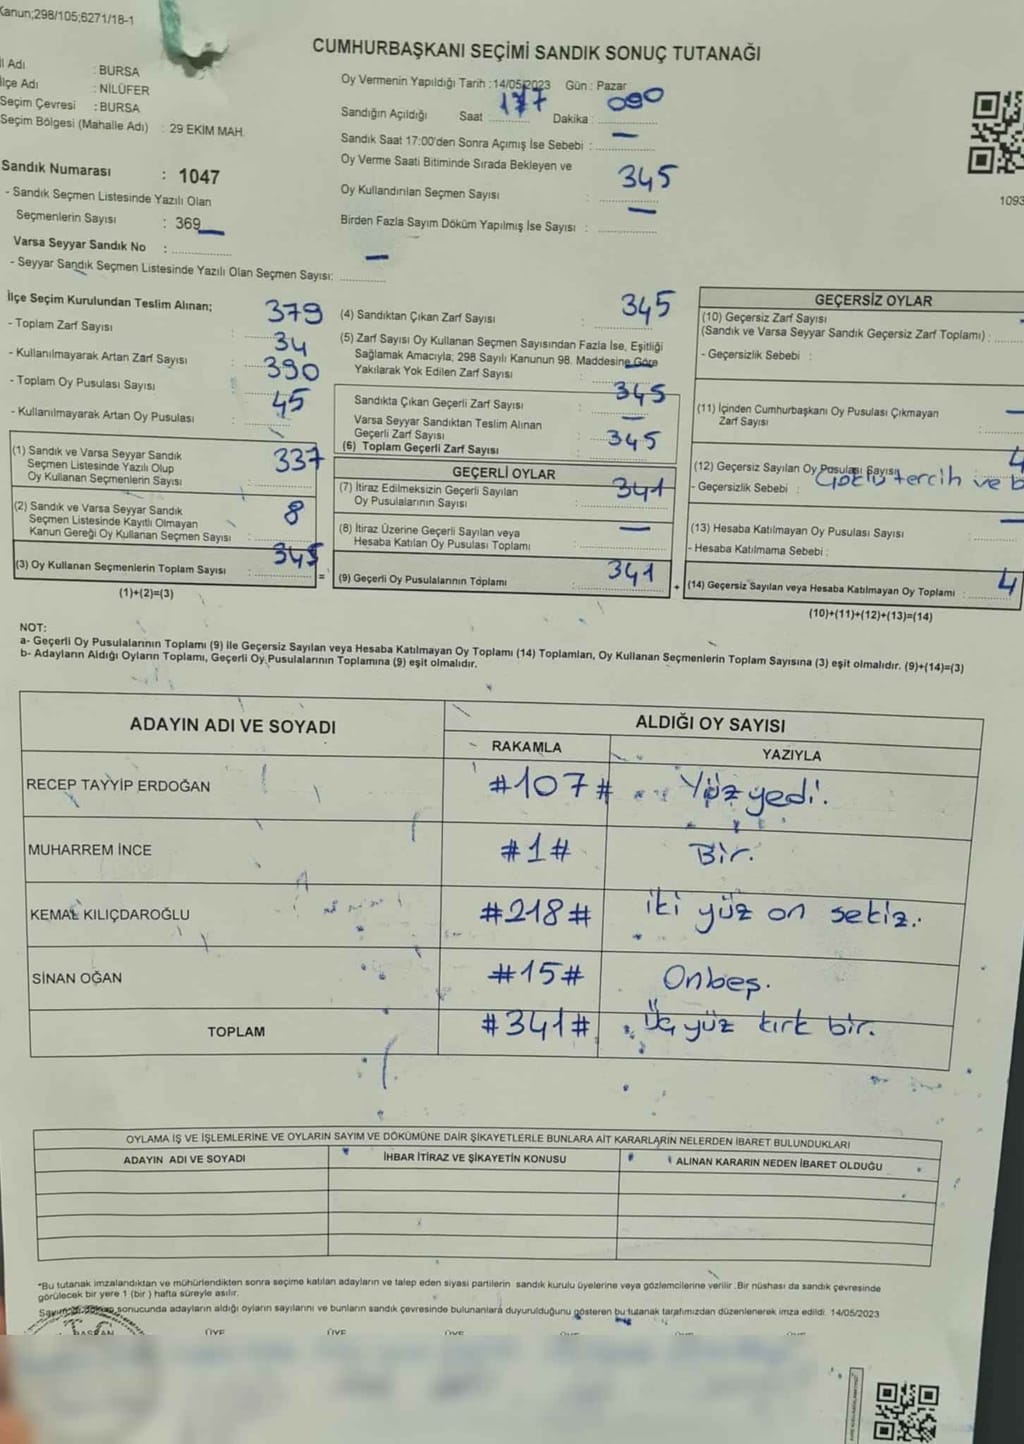 Kanun;298/105;6271/18-1
CUMHURBAŞKANI SEÇİMİ SANDIK SONUÇ TUTANAĞI
İl Adı : BURSA
İlçe Adı : NİLÜFER
Seçim Çevresi : BURSA
Seçim Bölgesi (Mahalle Adı) : 29 EKİM MAH.
Oy Vermenin Yapıldığı Tarih :14/05/2023 Gün : Pazar
Sandığın Açıldığı Saat 17 Dakika :
Sandık Saat 17:00'den Sonra Açımış İse Sebebi : —
Oy Verme Saati Bitiminde Sırada Bekleyen ve
Oy Kullandırılan Seçmen Sayısı : 345
Birden Fazla Sayım Döküm Yapılmış İse Sayısı : —
1093
Sandık Numarası : 1047
- Sandık Seçmen Listesinde Yazılı Olan
Seçmenlerin Sayısı : 369
Varsa Seyyar Sandık No : —
- Seyyar Sandık Seçmen Listesinde Yazılı Olan Seçmen Sayısı: —
İlçe Seçim Kurulundan Teslim Alınan;
- Toplam Zarf Sayısı : 379
- Kullanılmayarak Artan Zarf Sayısı : 34
- Toplam Oy Pusulası Sayısı : 390
- Kullanılmayarak Artan Oy Pusulası : 45
(1) Sandık ve Varsa Seyyar Sandık
Seçmen Listesinde Yazılı Olup
Oy Kullanan Seçmenlerin Sayısı : 337
(2) Sandık ve Varsa Seyyar Sandık
Seçmen Listesinde Kayıtlı Olmayan
Kanun Gereği Oy Kullanan Seçmen Sayısı : 8
(3) Oy Kullanan Seçmenlerin Toplam Sayısı : 345
(1)+(2)=(3)
(4) Sandıktan Çıkan Zarf Sayısı : 345
(5) Zarf Sayısı Oy Kullanan Seçmen Sayısından Fazla İse, Eşitliği
Sağlamak Amacıyla; 298 Sayılı Kanunun 98. Maddesine Göre
Yakılarak Yok Edilen Zarf Sayısı : —
Sandıkta Çıkan Geçerli Zarf Sayısı : 345
Varsa Seyyar Sandıktan Teslim Alınan
Geçerli Zarf Sayısı : —
(6) Toplam Geçerli Zarf Sayısı : 345
GEÇERLİ OYLAR
(7) İtiraz Edilmeksizin Geçerli Sayılan
Oy Pusulalarının Sayısı : 341
(8) İtiraz Üzerine Geçerli Sayılan veya
Hesaba Katılan Oy Pusulası Toplamı : —
(9) Geçerli Oy Pusulalarının Toplamı : 341
=
+
GEÇERSİZ OYLAR
(10) Geçersiz Zarf Sayısı
(Sandık ve Varsa Seyyar Sandık Geçersiz Zarf Toplamı) :
- Geçersizlik Sebebi :
(11) İçinden Cumhurbaşkanı Oy Pusulası Çıkmayan
Zarf Sayısı : —
(12) Geçersiz Sayılan Oy Pusulası Sayısı 4
- Geçersizlik Sebebi : tercih ve
(13) Hesaba Katılmayan Oy Pusulası Sayısı : —
- Hesaba Katılmama Sebebi :
(14) Geçersiz Sayılan veya Hesaba Katılmayan Oy Toplamı : 4
(10)+(11)+(12)+(13)=(14)
NOT:
a- Geçerli Oy Pusulalarının Toplamı (9) ile Geçersiz Sayılan veya Hesaba Katılmayan Oy Toplamı (14) Toplamları, Oy Kullanan Seçmenlerin Toplam Sayısına (3) eşit olmalıdır. (9)+(14)=(3)
b- Adayların Aldığı Oyların Toplamı, Geçerli Oy Pusulalarının Toplamına (9) eşit olmalıdır.
ADAYIN ADI VE SOYADI ALDIĞI OY SAYISI
RAKAMLA YAZIYLA
RECEP TAYYİP ERDOĞAN #107# Yüz yedi.
MUHARREM İNCE #1# Bir.
KEMAL KILIÇDAROĞLU #218# iki yüz on sekiz.
SİNAN OĞAN #15# Onbeş.
TOPLAM #341# Üç yüz kırk bir.
OYLAMA İŞ VE İŞLEMLERİNE VE OYLARIN SAYIM VE DÖKÜMÜNE DAİR ŞİKAYETLERLE BUNLARA AİT KARARLARIN NELERDEN İBARET BULUNDUKLARI
ADAYIN ADI VE SOYADI İHBAR İTİRAZ VE ŞİKAYETİN KONUSU ALINAN KARARIN NEDEN İBARET OLDUĞU
*Bu tutanak imzalandıktan ve mühürlendikten sonra seçime katılan adayların ve talep eden siyasi partilerin sandık kurulu üyelerine veya gözlemcilerine verilir .Bir nüshası da sandık çevresinde
görülecek bir yere 1 (bir ) hafta süreyle asılır.
sonucunda adayların aldığı oyların sayılarını ve bunların sandık çevresinde bulunanlara duyurulduğunu gösteren bu tutanak tarafımızdan düzenlenerek imza edildi. 14/05/2023
BAŞKAN ÜYE ÜYE ÜYE ÜYE ÜYE ÜYE